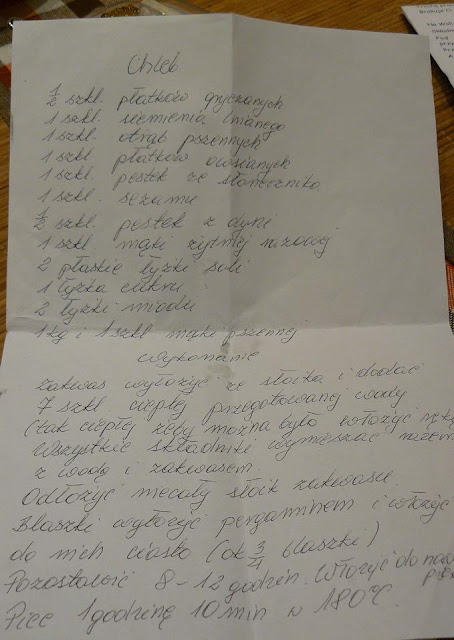 Chleb
1/2 szkl. płatków gryczanych
1 szkl. siemienia lnianego
1 szkl. otrąb pszennych
1 szkl. płatków owsianych
1 szkl. pestek ze słonecznika
1 szkl. sezamu
1/2 szkl. pestek z dyni
1 szkl. mąki żytniej razowej
2 płaskie łyżki soli
1 łyżka cukru
2 łyżki miodu
1 kg i 1 szkl mąki pszennej
wykonanie
Zakwas wyłożyć ze słoika i dodać
7 szkl. ciepłej przegotowanej wody
(tak ciepłej żeby można było włożyć rękę
Wszystkie składniki wymieszać razem
z wodą i zakwasem.
Odłożyć niecały słoik zakwasu.
Blaszki wyłożyć pergaminem i włożyć
do nich ciasto (ok 3/4 blaszki)
Pozostawić 8-12 godzin. Włożyć do
Piec 1 godzinę 10 min w 180°C.